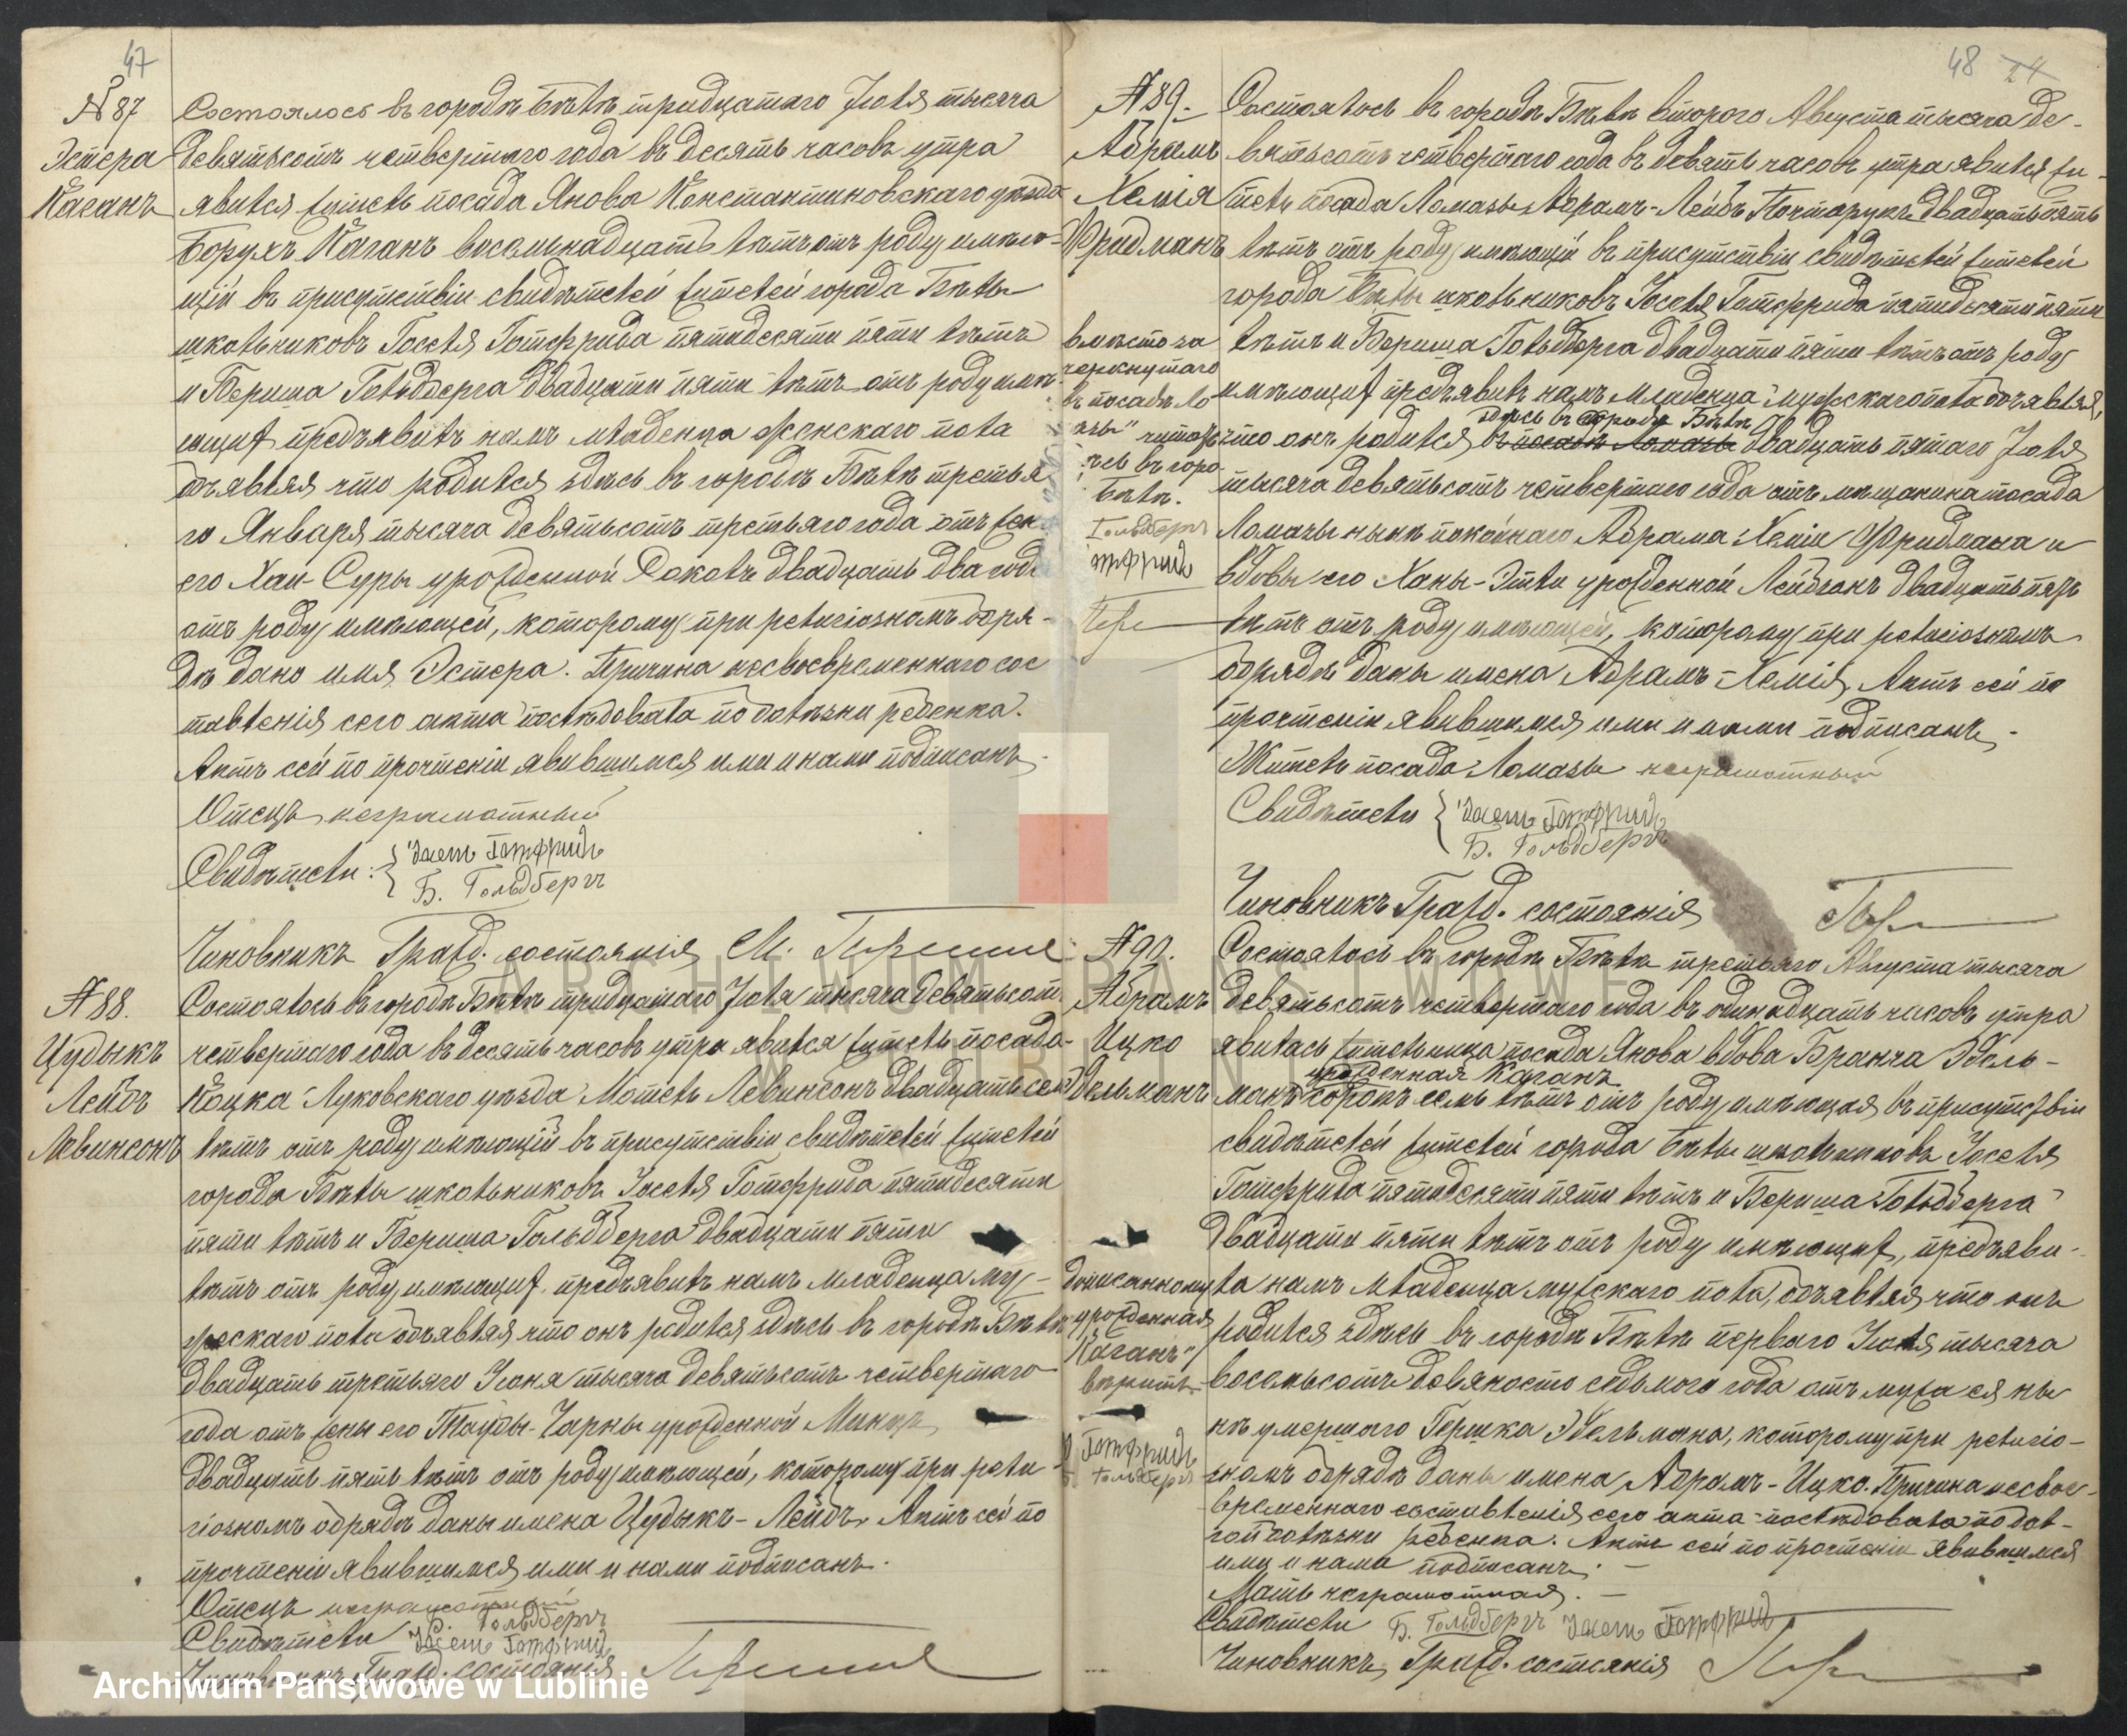 47
№ 87
Эстера
Каганъ
Состоялось въ городѣ Бѣлѣ тридцатаго Іюля тысяча
девятьсотъ четвертаго года въ десять часовъ утра
явился житель посада Янова Константиновскаго уѣзда
Борухъ Каганъ восемнадцать лѣтъ отъ роду имѣю-
щій въ присутствіи свидѣтелей жителей города Бѣлы
школьниковъ Госеля Готфрида пятидесяти пяти лѣтъ
и Бериша Гольдберга двадцати пяти лѣтъ отъ роду имѣ-
ющихъ предъявилъ намъ младенца женскаго пола
объявляя что родился здѣсь въ городѣ Бѣлѣ третья
го Января тысяча девятьсотъ третьяго года отъ жены
его Хаи Суры урожденной Соколъ двадцать два года
отъ роду имѣющей, которому при религіозномъ обря-
дѣ дано имя Эстера. Причина несвоевременнаго сос
тавленія сего акта послѣдовала по болѣзни ребенка.
Актъ сей по прочтеніи явившимся ими и нами подписанъ.
Отецъ неграмотный
Свидѣтели: Іосель Готфридъ
Б. Гольдбергъ
Чиновникъ Гражд. состоянія М.
№ 88.
Цудыкъ
Лейбъ
Левинсонъ
Состоялось въ городѣ Бѣлѣ тридцатаго Іюля тысяча девятьсотъ
четвертаго года въ десять часовъ утра явился житель посада
Коцка Луковскаго уѣзда Мотель Левинсонъ двадцать семь
лѣтъ отъ роду имѣющій въ присутствіи свидѣтелей жителей
города Бѣлы школьниковъ Іоселя Готфрида пятидесяти
пяти лѣтъ и Бериша Гольдберга двадцати пяти
лѣтъ отъ роду имѣющихъ предъявилъ намъ младенца му-
жескаго пола объявляя что онъ родился здѣсь въ городѣ Бѣлѣ
двадцать третьяго Іюня тысяча девятьсотъ четвертаго
года отъ жены его Тауды-Чарны урожденной Минцъ
двадцать пять лѣтъ отъ роду имѣющей, которому при рели
гіозномъ обрядѣ даны имена Цудыкъ-Лейбъ. Актъ сей по
прочтеніи явившимся ими и нами подписанъ.
Отецъ неграмотный
Б. Гольдбергъ
Свидѣтели Іосель Готфридъ
Чиновникъ Гражд. состоянія
48 24
№ 89.
Абрамъ
Хемія
Фридманъ
Состоялось въ городѣ Бѣлѣ второго Августа тысяча де-
вятьсотъ четвертаго года въ девять часовъ утра явился жи-
тель посада Ломазы Абрамъ-Лейбъ двадцать пять
лѣтъ отъ роду имѣющій въ присутствіи свидѣтелей жителей
города Бѣлы школьниковъ Іоселя Готфрида пятидесяти пяти
лѣтъ и Бериша Гольдберга двадцати пяти лѣтъ отъ роду
имѣющихъ предъявилъ намъ младенца мужскаго пола объявляя,
здѣсь въ городѣ Бѣлѣ
что онъ родился въ посадѣ Ломазы двадцать пятаго Іюля
тысяча девятьсотъ четвертаго года отъ мѣщанина посада
Ломазы нынѣ покойнаго Абрама Хеміи Фридмана и
вдовы его Ханы-Этли урожденной Лейбманъ двадцать пять
лѣтъ отъ роду имѣющей, которому при религіозномъ
обрядѣ даны имена Абрамъ-Хемія, Актъ сей по
прочтеніи явившимся ими и нами подписанъ.
Житель посада Ломазы неграмотный
Свидѣтели Іосель Готфридъ
Б. Гольдбергъ
Чиновникъ Гражд. состоянія
вмѣсто за
черкнутаго
въ посадѣ Ло
мазы" читать
здѣсь въ горо
Бѣлѣ.
Гольдбергъ
Готфридъ
№ 90.
Абрамъ
Ицко
Эдельманъ
Состоялось въ городѣ Бѣлѣ третьяго Августа тысяча
девятьсотъ четвертаго года въ одинадцать часовъ утра
явилась жительница посада Янова вдова Бранча Эдель-
урожденная Каганъ
манъ сорокъ семь лѣтъ отъ роду имѣющая въ присутствіи
свидѣтелей жителей города Бѣлы школьниковъ Іоселя
Готфрида пятидесяти пяти лѣтъ и Бериша Гольдберга
двадцати пяти лѣтъ отъ роду имѣющихъ, предъяви-
ла намъ младенца мужскаго пола, объявляя что онъ
родился здѣсь въ городѣ Бѣлѣ перваго Іюля тысяча
восемьсотъ девяносто седьмого года отъ мужа ея ны
нѣ умершаго Гершка Эдельмана, которому при религіо-
зномъ обрядѣ даны имена Абрамъ-Ицко. Причина несвое-
временнаго составленія сего акта послѣдовала по дол-
гой болѣзни ребенка. Актъ сей по прочтеніи явившимся
ими и нами подписанъ.
Мать неграмотная.
Свидѣтели Б. Гольдбергъ Іосель Готфридъ
Чиновникъ Гражд. состоянія
дописанному
урожденная
Каганъ"
вѣрить
Готфридъ
Гольдбергъ
ARCHIWUM PAŃSTWOWE
W LUBLINIE
Archiwum Państwowe w Lublinie